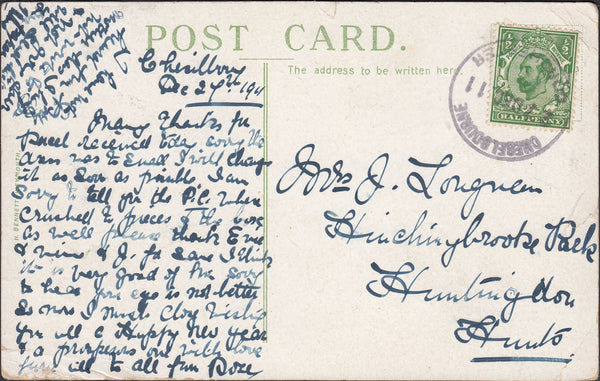 POST CARD.
The address to be written here.
Cheselborn
Dec 27th 1911
Many Thanks for
Parcel received today sorry the
dress was to Small I will change
it as Soon as possible I am
Sorry to tell you the P.C. When
Crushed to pieces & the box
as well please thank Eve
& & J. for same I think
it is very good of her sorry
to hear your eyes is not better
so now I must Close Wishing
you all a Happy New year
& a prosperous one with love
from all to all from Rose
Mrs J. Longueen
Hinchingbrooke Park
Huntingdon
Hunts
CHESELBOURNE
11
1/2 1/2
HALFPENNY